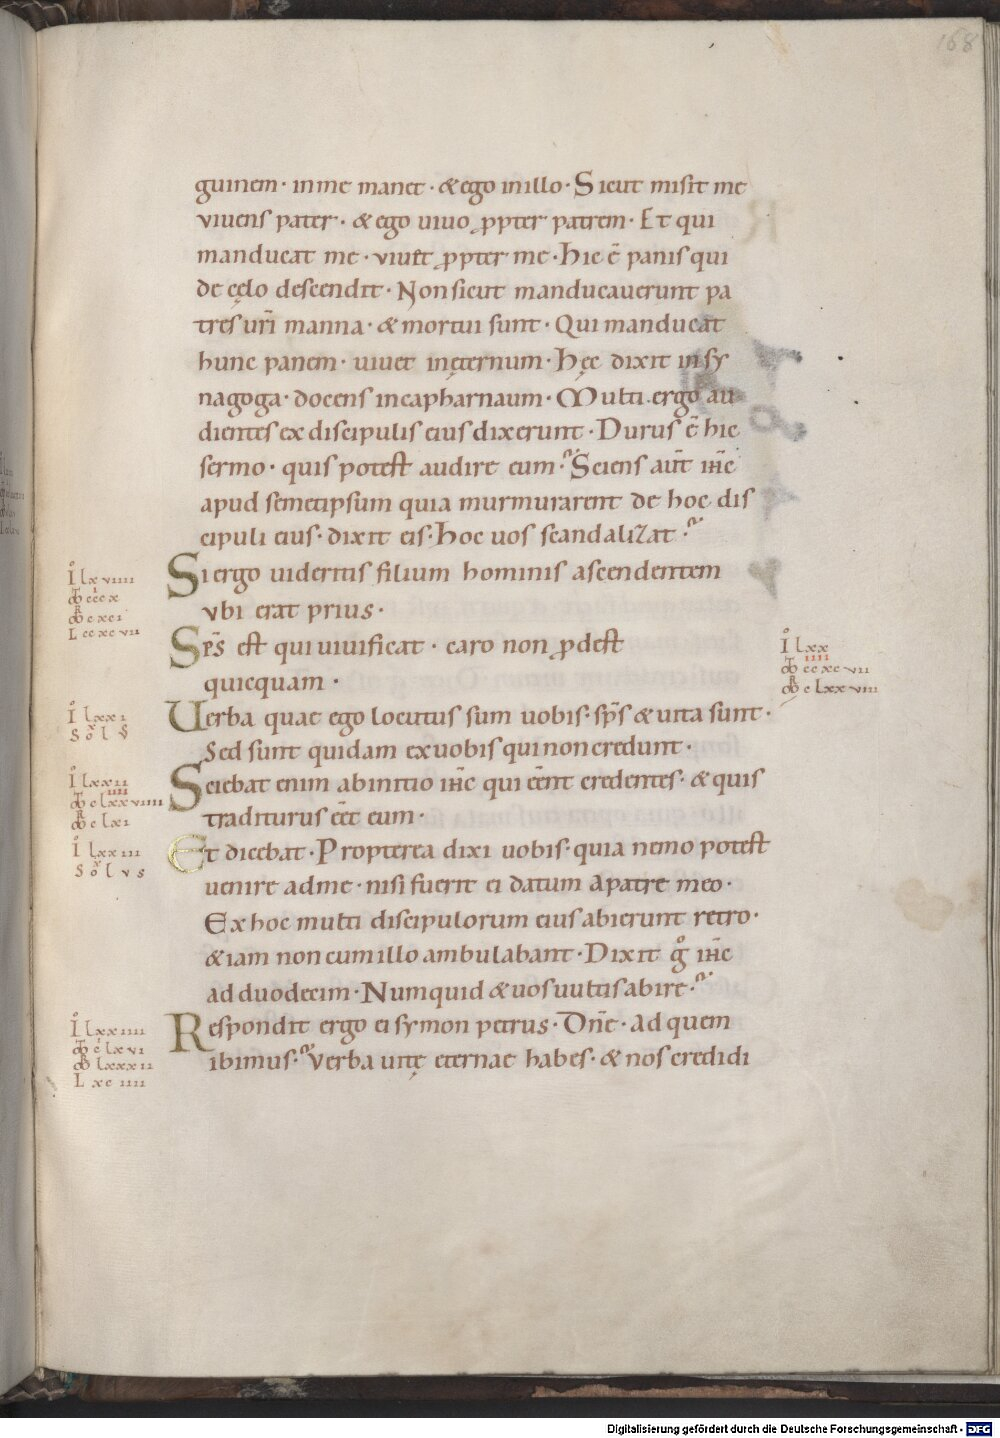 168
guinem · inme manet · & ego inillo · Sicut misit me
vivens pater · & ego vivo ꝓpter patrem · Et qui
manducat me · vivet ꝓpter me · hic ē panis qui
de cęlo descendit · Non sicut manducaverunt pa
tres urī manna · & mortui sunt · Qui manducat
hunc panem · vivet inęternum · hęc dixit insy
nagoga · docens incapharnaum · Multi ergo au
dientes ex discipulis eius dixerunt · Durus ē hic
sermo · quis potest audire eum · Sciens aut̄ ih̄c
apud semetipsum quia murmurarent de hoc dis
cipuli eius · dixit eis · hoc vos scandalizat ·
Si ergo videritis filium hominis ascendentem
vbi erat prius ·
Sp̄s est qui vivificat · caro non ꝓdest
quicquam ·
Verba quae ego locutus sum vobis · sp̄s & vita sunt ·
Sed sunt quidam exvobis quinoncredunt ·
Sciebat enim abinitio ih̄c qui eēnt credentes · & quis
traditurus eēt eum ·
Et dicebat · Propterea dixi vobis · quia nemo potest
venire adme · nisi fuerit ei datum apatre meo ·
Ex hoc multi discipulorum eius abierunt retro ·
& iam noncumillo ambulabant · Dixit gͦ ih̄c
ad duodecim · Numquid & vos vultis abire ·
Respondit ergo ei symon petrus · Dn̄e · ad quem
ibimus · Verba vitę eternae habes · & nos credidi
I lxviiii
ccc x
c xci
L cc xc vii
I lxx
iiii
cc xc vii
c lxx viii
I lxxi
I lxxii
iiii
c lxxviiii
c lxi
I lxxiii
I lxxiiii
c lxvi
lxxxii
L xc iiii
Digitalisierung gefördert durch die Deutsche Forschungsgemeinschaft - DFG